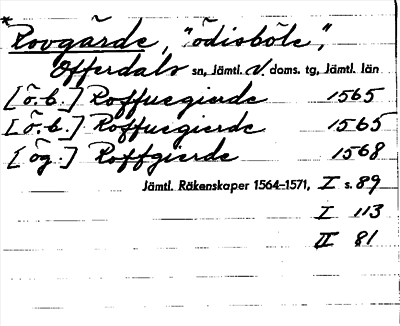 *Rovgärde, "ödisböle",
Offerdals sn, Jämtl. V. doms. tg, Jämtl. län
[ö.b.] Roffuegierde 1565
[ö.b.] Roffuegierde 1565
[ög.] Roffgierde 1568
Jämtl. Räkenskaper 1564-1571, I s. 89
I 113
II 81